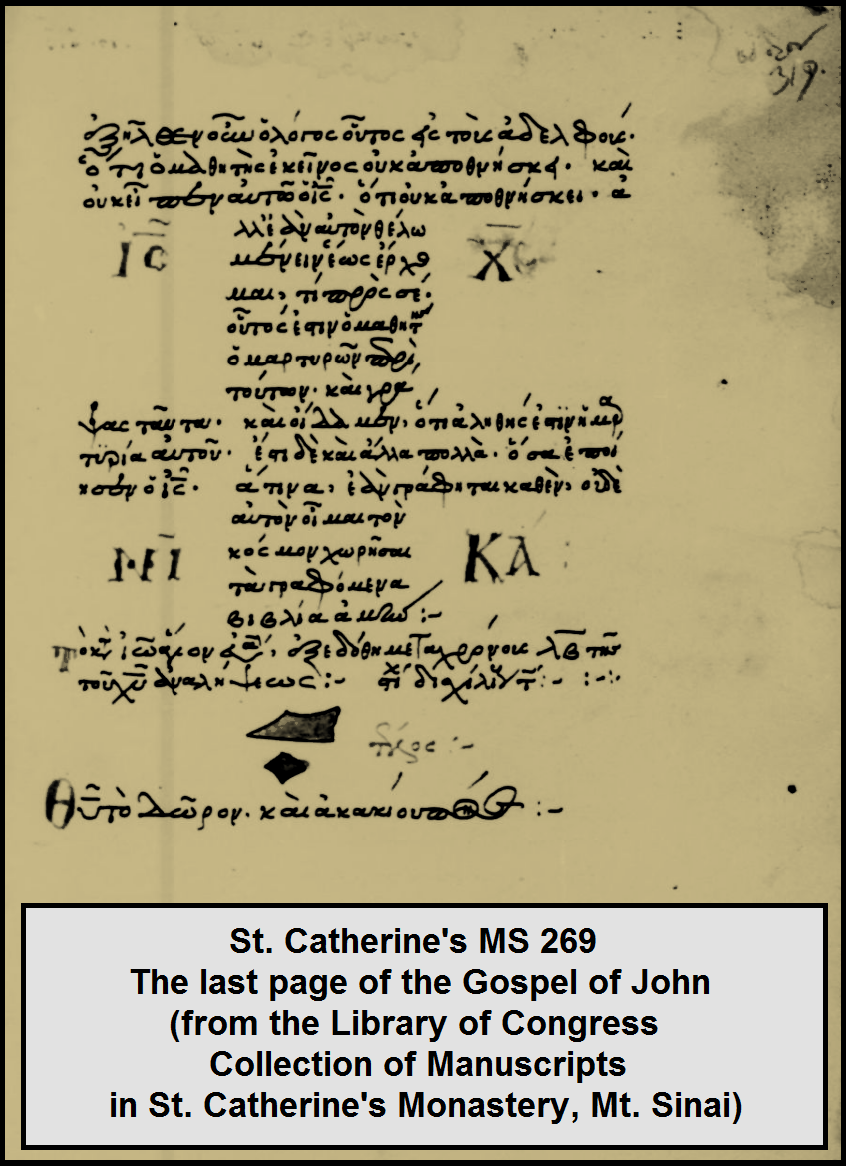 319.
ἐξῆλθεν οὖν ὁ λόγος οὗτος εἰς τοὺς ἀδελφούς.
ὅτι ὁ μαθητὴς ἐκεῖνος οὐκ ἀποθνήσκει. καὶ
οὐκ εἶπεν αὐτῶ ὁ ι̅ς̅. ὅτι οὐκ ἀποθνήσκει. ἀ
λλ' ἐὰν αὐτὸν θέλω
μένειν ἕως ἔρχο
μαι, τί πρὸς σέ.
οὗτός ἐστιν ὁ μαθητὴς
ὁ μαρτυρῶν περὶ
τούτων. καὶ γρά
ψας ταῦτα. καὶ οἴδαμεν, ὅτι ἀληθής ἐστιν ἡ μαρ
τυρία αὐτοῦ. ἔστι δὲ καὶ ἄλλα πολλὰ. ὅσα ἐποί
ησεν ὁ ι̅ς̅. ἅτινα, ἐὰν γράφηται καθ' ἕν, οὐδὲ
αὐτὸν οἶμαι τὸν
κόσμον χωρῆσαι
τὰ γραφόμενα
βιβλία ἀμήν :-
ΙС Χ
ΝΙ ΚΑ
ἐξεδόθη μετὰ χρόνους λ̅β̅ τῆς
τοῦ χ̅υ̅ ἀναλήψεως :-
Θ̅Υ̅ τὸ δῶρον. καὶ ἀκακίου πόνος :-
St. Catherine's MS 269
The last page of the Gospel of John
(from the Library of Congress
Collection of Manuscripts
in St. Catherine's Monastery, Mt. Sinai)